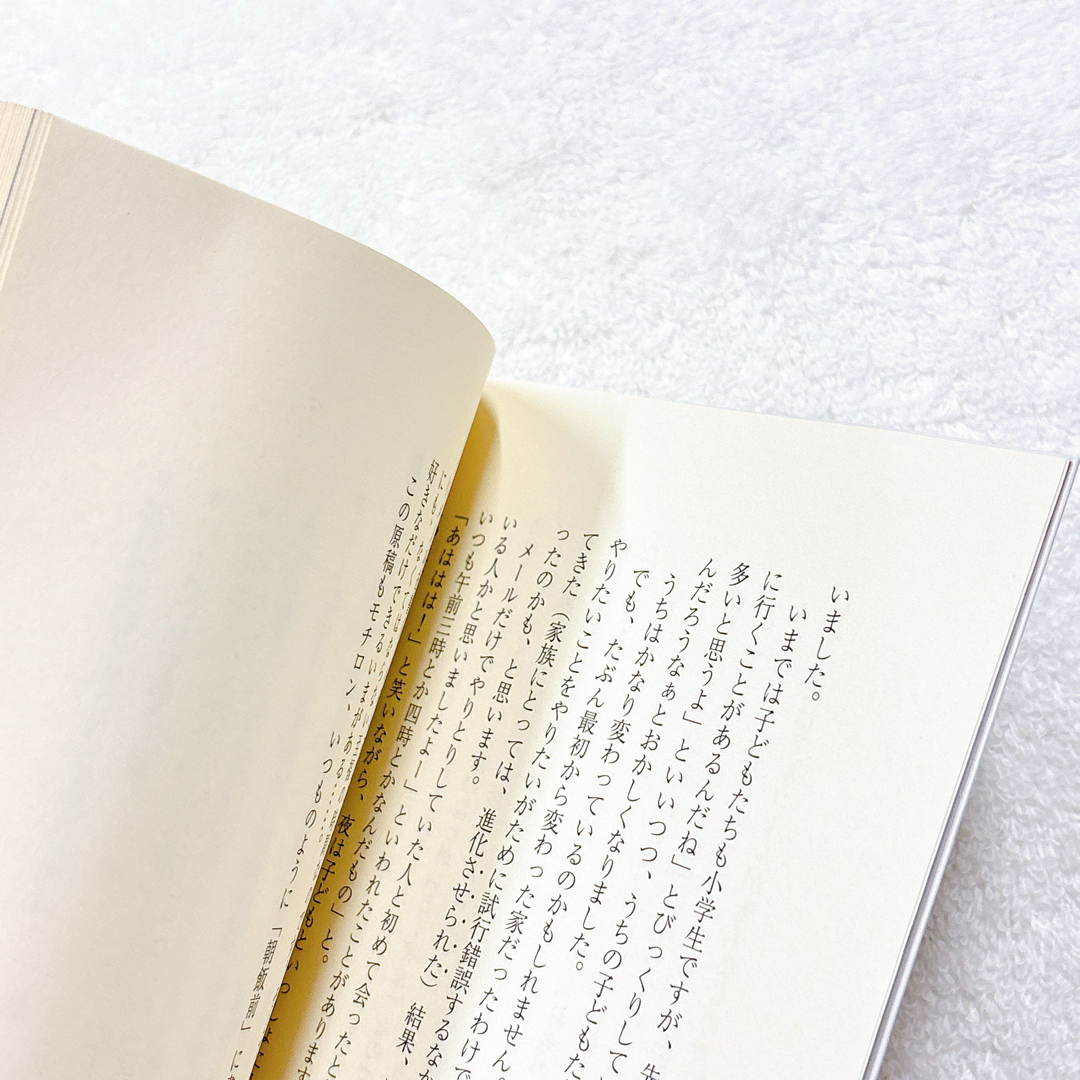 いました。
いまでは子どもたちも小学生ですが、先
に行くことがあるんだね」とびっくりして
多いと思うよ」といいつつ、うちの子どもた
んだろうなぁとおかしくなりました。
うちはかなり変わっているのかもしれません。
でも、たぶん最初から変わった家だったわけで
やりたいことをやりたいがために試行錯誤するなか
てきた(家族にとっては、進化させられた)結果、
ったのかも、と思います。
メールだけでやりとりしていた人と初めて会ったと
いる人かと思いましたよー」といわれたことがあります
いつも午前三時とか四時とかなんだもの」と。
「あははは!」と笑いながら、夜は子どもといっしょに
にも、
好きなだけできるいまがある……
この原稿もモチロン、いつものように「朝飯前」に